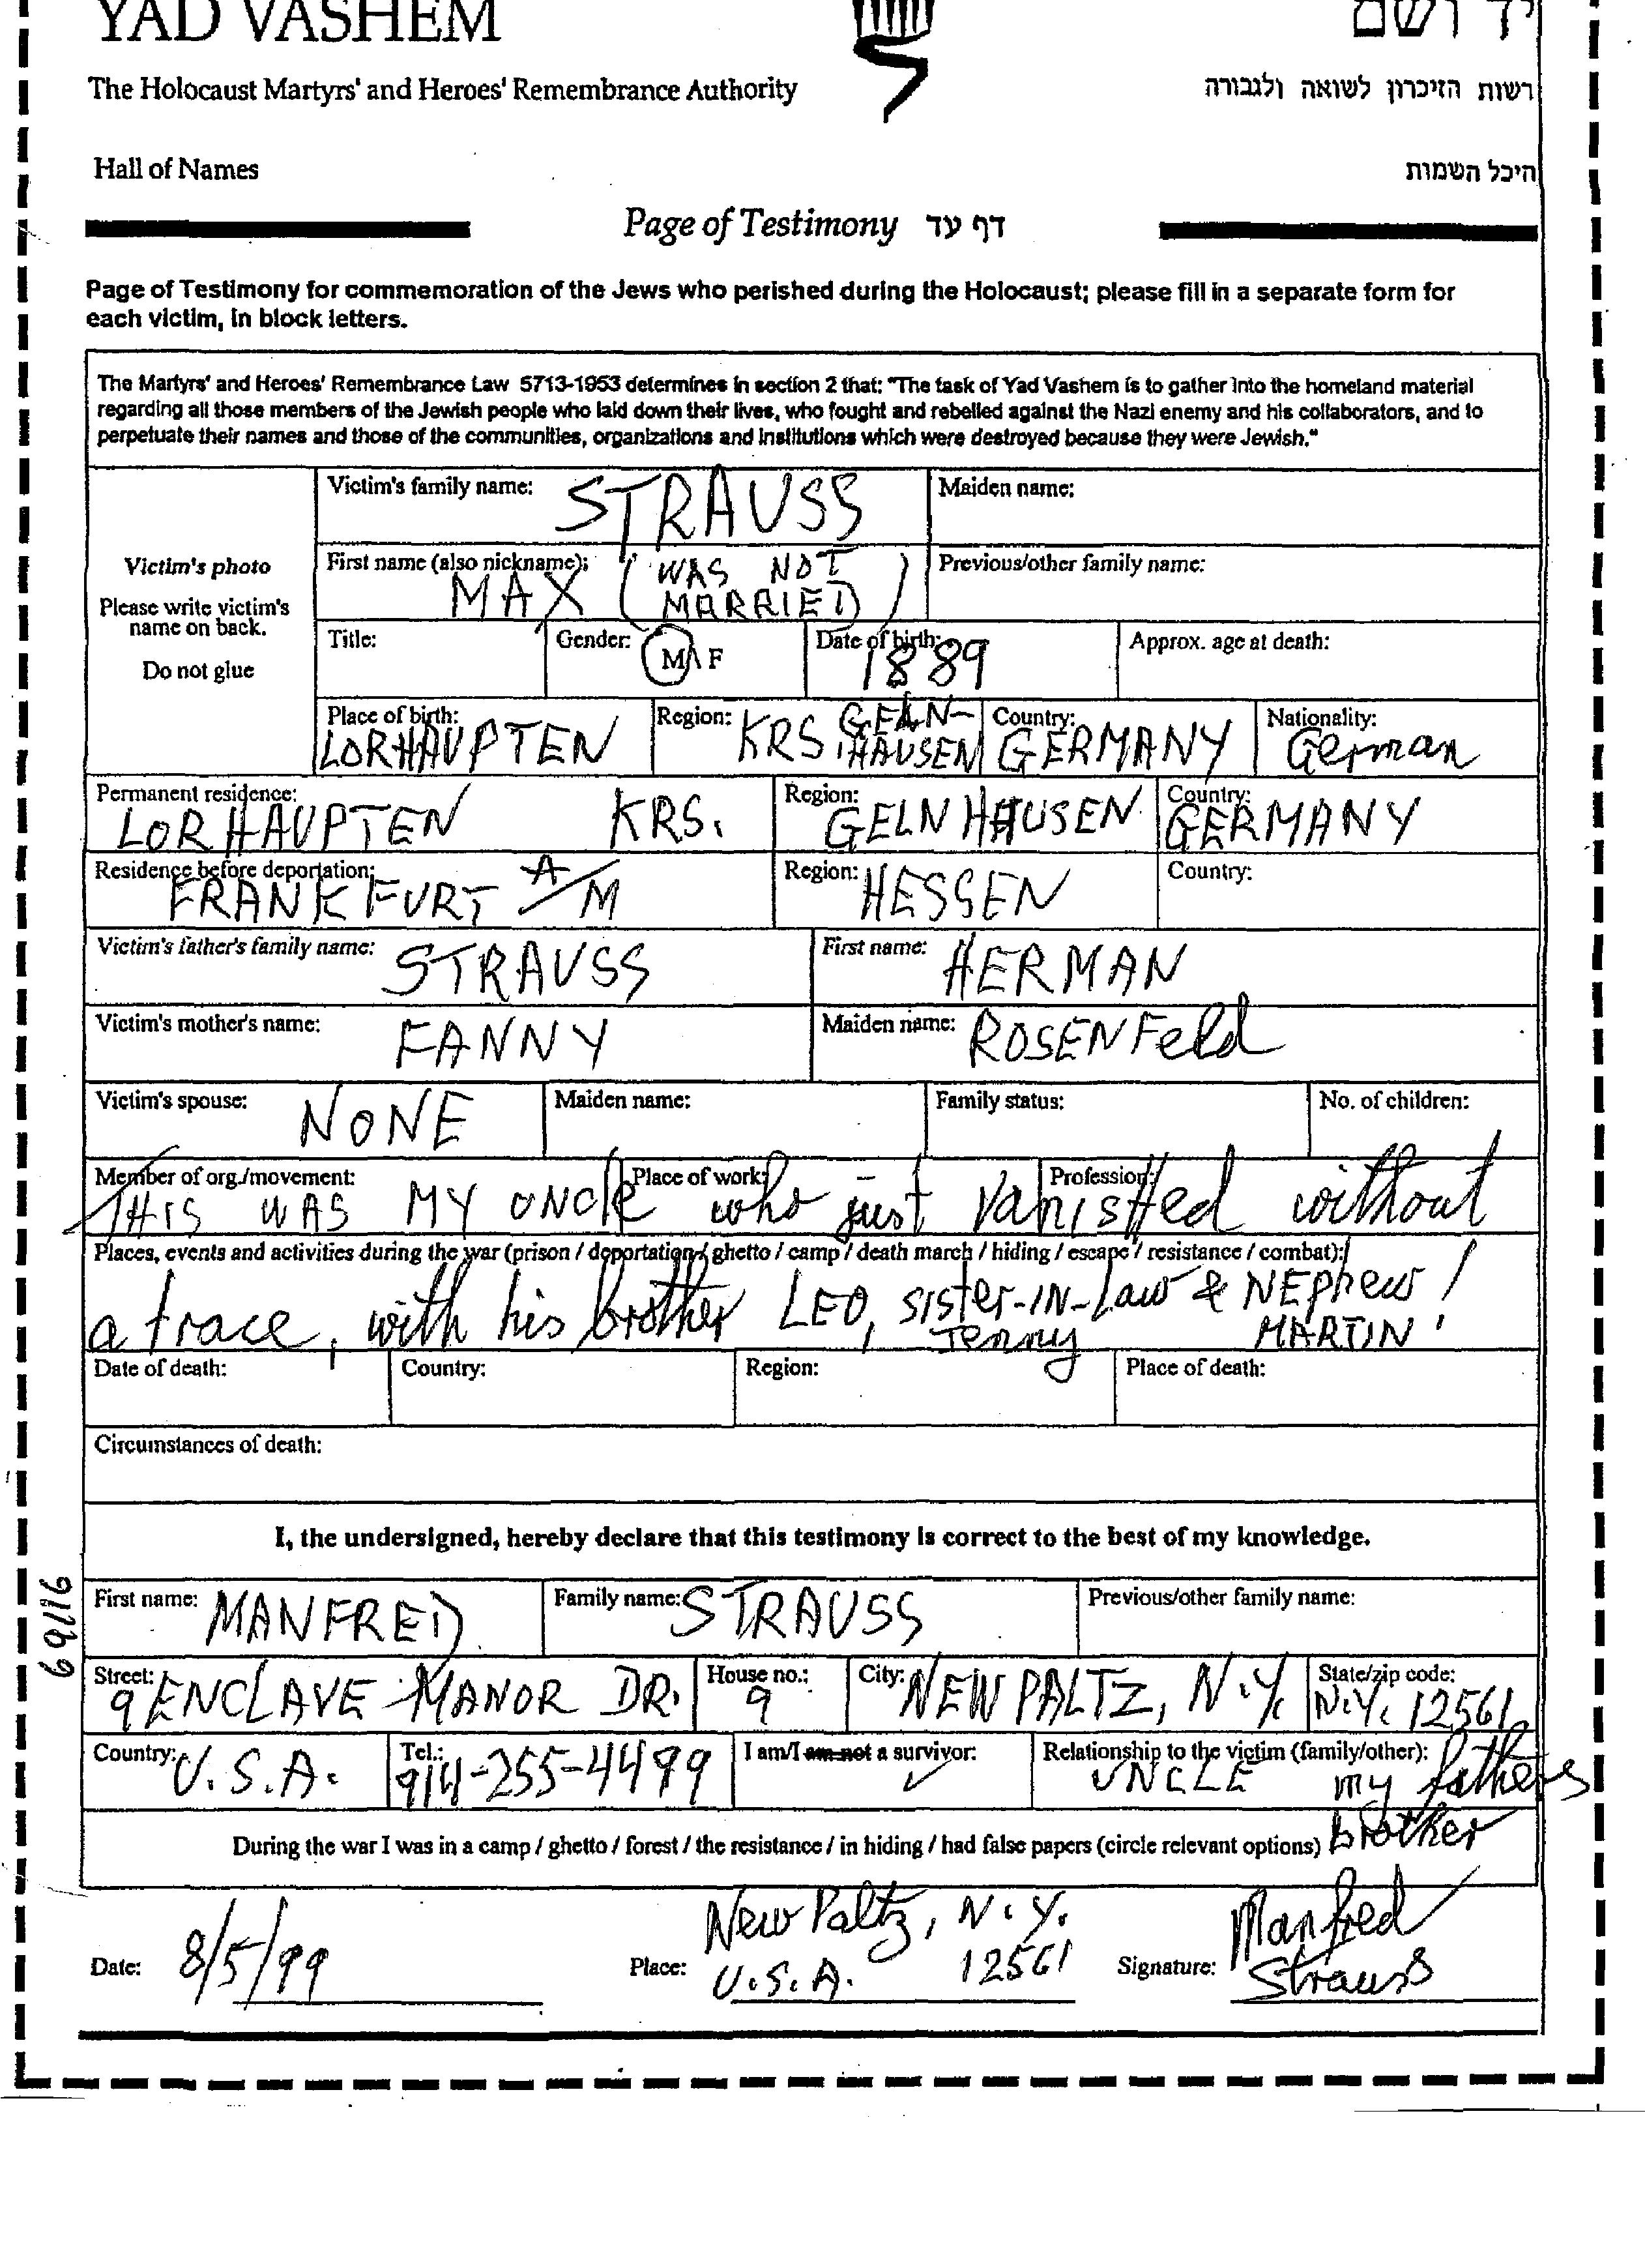 YAD VASHEM יד ושם
The Holocaust Martyrs' and Heroes' Remembrance Authority רשות הזיכרון לשואה ולגבורה
Hall of Names היכל השמות
Page of Testimony דף עד
Page of Testimony for commemoration of the Jews who perished during the Holocaust; please fill in a separate form for
each victim, in block letters.
The Martyrs' and Heroes' Remembrance Law 5713-1953 determines in section 2 that: "The task of Yad Vashem is to gather into the homeland material
regarding all those members of the Jewish people who laid down their lives, who fought and rebelled against the Nazi enemy and his collaborators, and to
perpetuate their names and those of the communities, organizations and institutions which were destroyed because they were Jewish."
Victim's photo
Please write victim's
name on back.
Do not glue
Victim's family name: STRAUSS Maiden name:
First name (also nickname): MAX (WAS NOT
MARRIED) Previous/other family name:
Title: Gender: M / F Date of birth: 1889 Approx. age at death:
Place of birth: LORHAUPTEN Region: KRS GELN-
HAUSEN Country: GERMANY Nationality: German
Permanent residence: LORHAUPTEN KRS. Region: GELNHAUSEN Country: GERMANY
Residence before deportation: FRANKFURT A/M Region: HESSEN Country:
Victim's father's family name: STRAUSS First name: HERMAN
Victim's mother's name: FANNY Maiden name: ROSENFeld
Victim's spouse: NONE Maiden name: Family status: No. of children:
Member of org./movement: Place of work: Profession:
THIS WAS MY UNCle who just vanisHed without
Places, events and activities during the war (prison / deportation / ghetto / camp / death march / hiding / escape / resistance / combat):
a trace, with his brother LEO, sister-IN-Law & NEphew!
Jenny MARTIN
Date of death: Country: Region: Place of death:
Circumstances of death:
I, the undersigned, hereby declare that this testimony is correct to the best of my knowledge.
First name: MANFRED Family name: STRAUSS Previous/other family name:
Street: 9 ENCLAVE MANOR DR. House no.: 9 City: NEW PALTZ, N.Y. State/zip code: N.Y. 12561
Country: U.S.A. Tel.: 914-255-4499 I am/I am not a survivor: ✓ Relationship to the victim (family/other): UNCLE my fathers
brother
During the war I was in a camp / ghetto / forest / the resistance / in hiding / had false papers (circle relevant options)
Date: 8/5/99 Place: New Paltz, N.Y.
U.S.A. 12561 Signature: Manfred
Strauss
69616